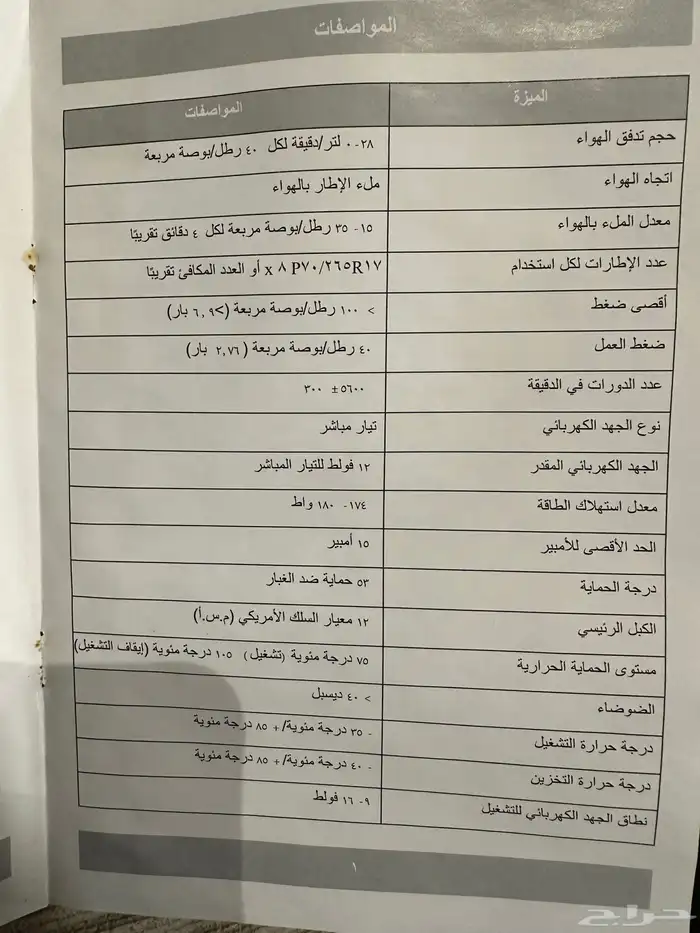 المواصفات
الميزة المواصفات
حجم تدفق الهواء ٢٨-٠ لتر/دقيقة لكل ٤٠ رطل/بوصة مربعة
اتجاه الهواء ملء الإطار بالهواء
معدل الملء بالهواء ١٥- ٣٥ رطل/بوصة مربعة لكل ٤ دقائق تقريبًا
عدد الإطارات لكل استخدام x ٨ P٧٠/٢٦٥R١٧ أو العدد المكافئ تقريبًا
أقصى ضغط > ١٠٠ رطل/بوصة مربعة (>٦,٩ بار)
ضغط العمل ٤٠ رطل/بوصة مربعة (٢,٧٦ بار)
عدد الدورات في الدقيقة ٥٦٠٠± ٣٠٠
نوع الجهد الكهربائي تيار مباشر
الجهد الكهربائي المقدر ١٢ فولط للتيار المباشر
معدل استهلاك الطاقة ١٧٤- ١٨٠ واط
الحد الأقصى للأمبير ١٥ أمبير
درجة الحماية ٥٣ حماية ضد الغبار
الكبل الرئيسي ١٢ معيار السلك الأمريكي (م.س.أ)
مستوى الحماية الحرارية ٧٥ درجة مئوية (تشغيل) ١٠٥ درجة مئوية (إيقاف التشغيل)
الضوضاء > ٤٠ ديسبل
درجة حرارة التشغيل - ٣٥ درجة مئوية/+ ٨٥ درجة مئوية
درجة حرارة التخزين - ٤٠ درجة مئوية/+ ٨٥ درجة مئوية
نطاق الجهد الكهربائي للتشغيل ٩- ١٦ فولط
١
حراج